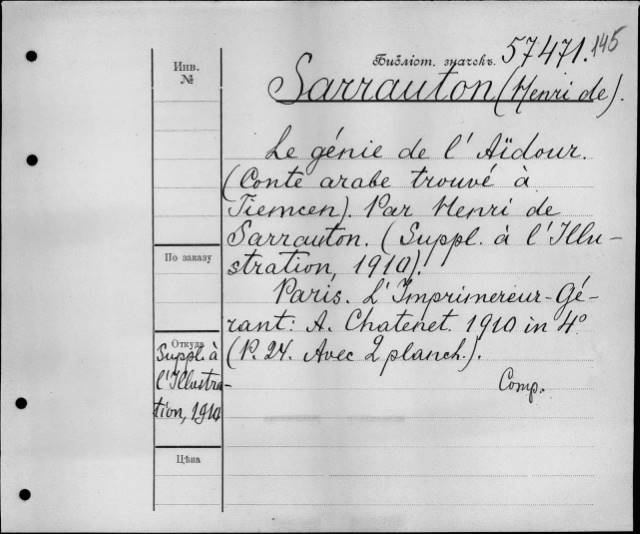 Библіот. значекъ. 57471.145
Инв.
№
Sarrauton (Henri de).
Le génie de l'Aïdour.
(Conte arabe trouvé à
Tiemcen). Par Henri de
Sarrauton. (Suppl. à l'Illu-
stration, 1910).
По заказу
Paris. L'Imprimereur-Gé-
rant: A. Chatenet. 1910 in 4°
(P. 24. Avec 2 planch.).
Откуда
Suppl. à
l'Illustra-
tion, 1910
Comp.
Цѣна